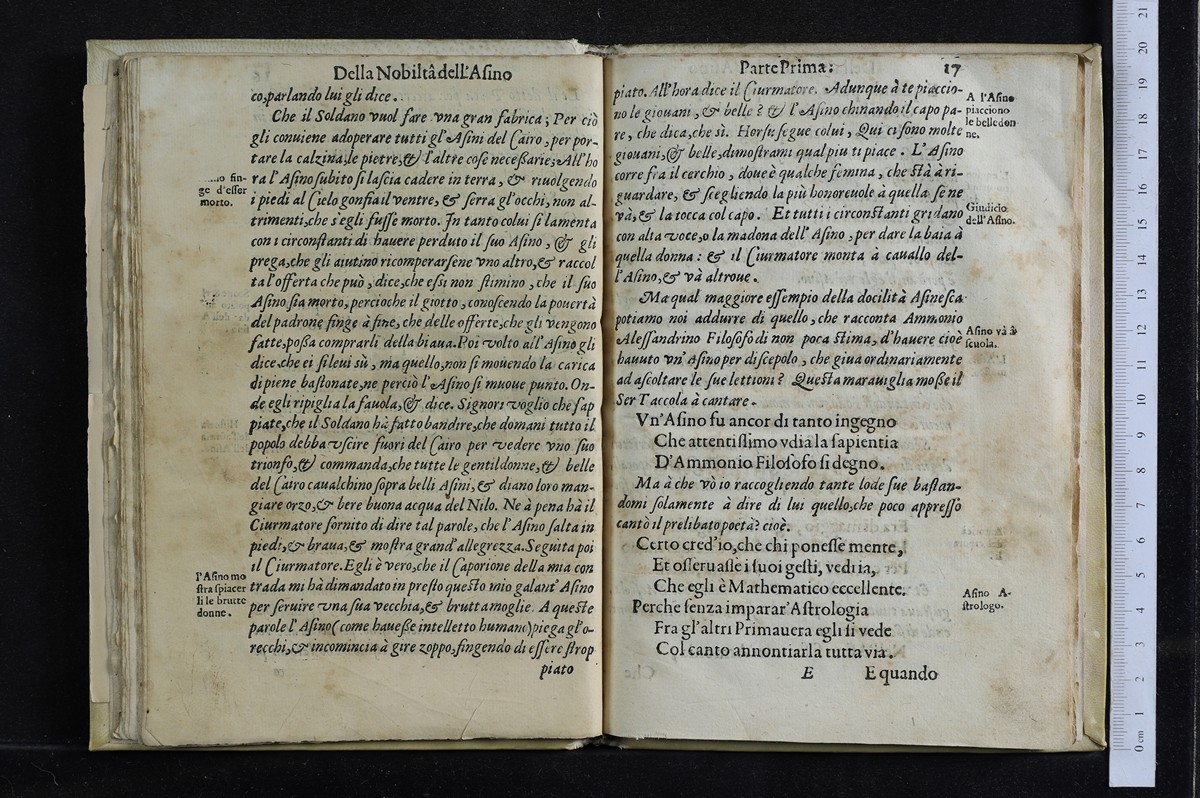 Della Nobiltâ dell'Aſino
co, parlando lui gli dice.
Che il Soldano vuol fare vna gran fabrica; Per ciò
gli conuiene adoperare tutti gl'Aſini del Cairo, per por-
tare la calzina, le pietre, & l'altre coſe neceſſarie; All'ho
ra l'Aſino ſubito ſi laſcia cadere in terra, & riuolgendo
i piedi al Cielo gonfia il ventre, & ſerra gl'occhi, non al-
trimenti, che s'egli fuſſe morto. In tanto colui ſi lamenta
con i circonſtanti di hauere perduto il ſuo Aſino, & gli
prega, che gli aiutino ricomperarſene vno altro, & raccol
ta l'offerta che può, dice, che eſsi non ſtimino, che il ſuo
Aſino ſia morto, percioche il giotto, conoſcendo la pouertà
del padrone finge à fine, che delle offerte, che gli vengono
fatte, poſſa comprarli della biaua. Poi volto all'Aſino gli
dice, che ei ſi leui sù, ma quello, non ſi mouendo la carica
di piene baſtonate, ne perciò l'Aſino ſi muoue punto. On-
de egli ripiglia la fauola, & dice. Signori voglio che ſap
piate, che il Soldano hà fatto bandire, che domani tutto il
popolo debba vſcire fuori del Cairo per vedere vno ſuo
trionfo, & commanda, che tutte le gentildonne, & belle
del Cairo caualchino ſopra belli Aſini, & diano loro man-
giare orzo, & bere buona acqua del Nilo. Ne à pena hà il
Ciurmatore fornito di dire tal parole, che l'Aſino ſalta in
piedi, & braua, & moſtra grand'allegrezza. Seguita poi
il Ciurmatore. Egli è vero, che il Caporione della mia con
trada mi hà dimandato in preſto queſto mio galant'Aſino
per ſeruire vna ſua vecchia, & brutta moglie. A queſte
parole l'Aſino (come haueſſe intelletto humano) piega gl'o-
recchi, & incomincia à gire zoppo, fingendo di eſſere ſtrop
piato
no fin-
ge d'eſſer
morto.
l'Aſino mo
ſtra ſpiacer
li le brutte
donne.
Parte Prima.
17
piato. All'hora dice il Ciurmatore. Adunque à te piaccio-
no le giouani, & belle? & l'Aſino chinando il capo pa-
re, che dica, che sì. Horſu ſegue colui, Qui ci ſono molte
giouani, & belle, dimoſtrami qual piu ti piace. L'Aſino
corre fra il cerchio, doue è qualche femina, che ſtà à ri-
guardare, & ſcegliendo la più honoreuole à quella ſe ne
và, & la tocca col capo. Et tutti i circonſtanti gridano
con alta voce, o la madona dell'Aſino, per dare la baia à
quella donna: & il Ciurmatore monta à cauallo del-
l'Aſino, & và altroue.
Ma qual maggiore eſſempio della docilità Aſineſca
potiamo noi addurre di quello, che racconta Ammonio
Aleſſandrino Filoſofo di non poca ſtima, d'hauere cioè
hauuto vn'Aſino per diſcepolo, che giua ordinariamente
ad aſcoltare le ſue lettioni? Queſta marauiglia moſſe il
Ser Taccola à cantare.
Vn'Aſino fu ancor di tanto ingegno
Che attentiſſimo vdia la ſapientia
D'Ammonio Filoſofo ſi degno.
Ma à che vò io raccogliendo tante lode ſue baſtan-
domi ſolamente à dire di lui quello, che poco appreſſo
cantò il prelibato poeta? cioè.
Certo cred'io, che chi poneſſe mente,
Et oſſeruaſſe i ſuoi geſti, vedria,
Che egli è Mathematico eccellente.
Perche ſenza imparar'Aſtrologia
Fra gl'altri Primauera egli ſi vede
Col canto annontiarla tutta via.
E
E quando
A l'Aſino
piacciono
le belle don
ne.
Giudicio
dell'Aſino.
Aſino và à
ſcuola.
Aſino A-
ſtrologo.
0 cm 1 2 3 4 5 6 7 8 9 10 11 12 13 14 15 16 17 18 19 20 21